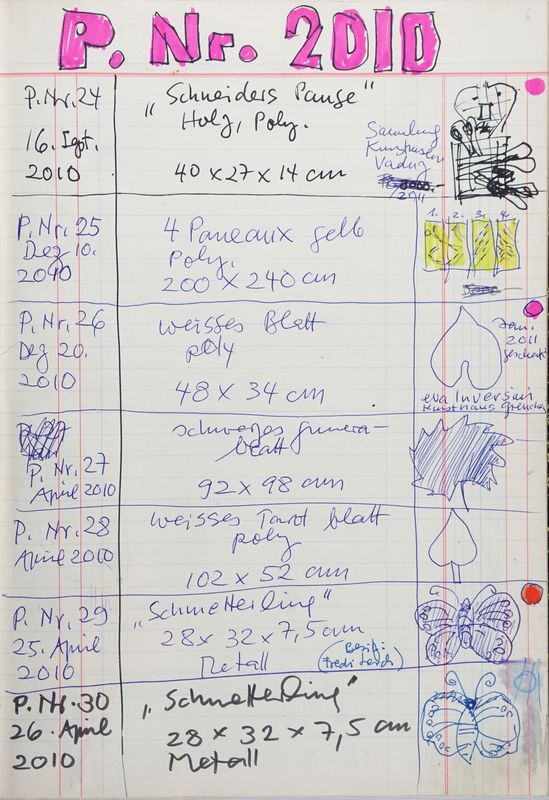 P. Nr. 2010
6
P. Nr. 24
„Schneiders Pause"
Holz, Poly.
16. Sept.
2010
40 x 27 x 14 cm
Sammlung
Kunstmuseum
Vaduz
2011
P. Nr. 25
Dez 10.
2010
4 Paneaux gelb
Poly.
200 x 240 cm
1. 2. 3. 4.
P. Nr. 26
Dez 20.
2010
weisses Blatt
poly
48 x 34 cm
Jan.
2011
geschenkt
eva Inversini
Kunsthaus Grenchen
P. Nr. 27
April 2010
schwarzes
blatt
92 x 98 cm
P. Nr. 28
April 2010
weisses Tarot blatt
poly
102 x 52 cm
P. Nr. 29
25. April
2010
„Schmetterling"
28 x 32 x 7,5 cm
Metall
Besitz:
Fredi Lerch
P. Nr. 30
26. April
2010
„Schmetterling"
28 x 32 x 7,5 cm
Metall